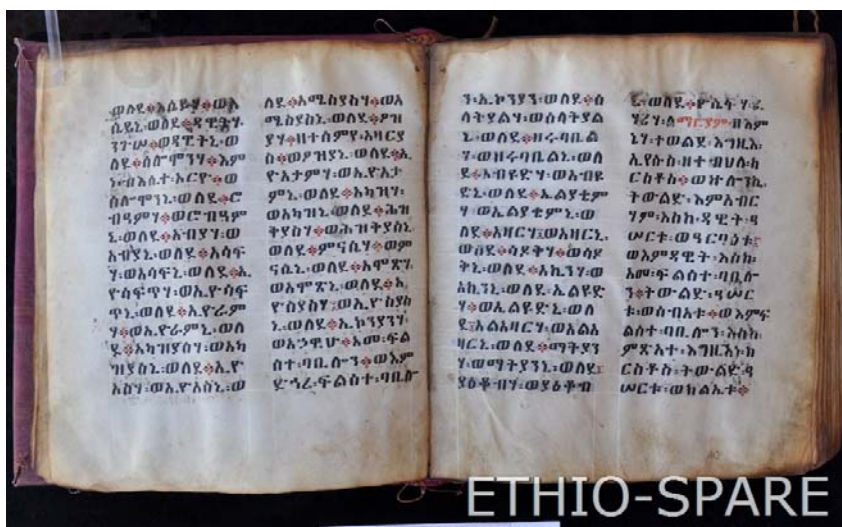 ወለደ፨እሴይሃ፨ወእ
ሴይኒ፡ወለደ፨ዳዊትሃ፡
ንጉሠ፨ወዳዊትኒ፡ወ
ለደ፨ሰሎሞንሃ፨እም
ነ፡ብእሲተ፡ኦርዮ፨ወ
ሰሎሞንኒ፡ወለደ፨ሮ
ብዓምሃ፨ወሮብዓም
ኒ፡ወለደ፨አብያሃ፡ወ
አብያኒ፡ወለደ፨አሳፍ
ሃ፡ወአሳፍኒ፡ወለደ፨ኢ
ዮሳፍጥሃ፡ወኢዮሳፍ
ጥኒ፡ወለደ፨ኢዮራም
ሃ፨ወኢዮራምኒ፡ወለ
ደ፨አካዝያስሃ፡ወአካ
ዝያስኒ፡ወለደ፨ኢዮ
አስሃ፡ወኢዮአስኒ፡ወ
ለደ፨አሜስያስሃ፨ወአ
ሜስያስኒ፡ወለደ፨ዖዝ
ያሃ፨ዘተሰምየ፡አዛርያ
ስ፨ወዖዝያኒ፡ወለደ፨ኢ
ዮአታምሃ፡ወኢዮአታ
ምኒ፡ወለደ፨አካዝሃ፡
ወአካዝኒ፡ወለደ፨ሕዝ
ቅያስሃ፨ወሕዝቅያስኒ
ወለደ፨ምናሴሃ፨ወም
ናሴኒ፡ወለደ፨አሞጽሃ
ወአሞጽኒ፡ወለደ፨ኢ
ዮስያስሃ፡ወኢዮስያስ
ኒ፡ወለደ፨ኢኮንያንሃ፡
ወአኃዊሁ፨አመ፡ፍል
ሰተ፡ባቢሎን፨ወእም
ድኅረ፡ፍልሰተ፡ባቢሎ
ን፡ኢኮንያን፡ወለደ፨ሰ
ላትያልሃ፡ወሰላትያል
ኒ፡ወለደ፨ዘሩባቤል
ሃ፡ወዘሩባቤልኒ፡ወለ
ደ፨አብዩድሃ፡ወአብዩ
ድኒ፡ወለደ፨ኤልያቄም
ሃ፡ወኤልያቄምኒ፡ወ
ለደ፨አዛርሃ፡ወአዛርኒ፡
ወለደ፨ሳዶቅሃ፨ወሳዶ
ቅኒ፡ወለደ፨አኪንሃ፡ወ
አኪንኒ፡ወለደ፡ኤልዩድ
ሃ፨ወኤልዩድኒ፡ወለ
ደ፡አልአዛርሃ፡ወአልአ
ዛርኒ፡ወለደ፨ማትያን
ሃ፡ወማትያንኒ፡ወለደ፡
ያዕቆብሃ፡ወያዕቆብ
ኒ፡ወለደ፨ዮሴፍሃ፡ፈ
ሃሪሃ፡ለማርያም፡ብእም
ኔሃ፡ተወልደ፡እግዚእ፡
ኢየሱስ፡ዘተብህለ፡ክ
ርስቶስ፨ወኵሎንኬ፡
ትውልድ፡እምአብር
ሃም፡እስከ፡ዳዊት፡ዓ
ሠርቱ፡ወዓርባዕቱ፡
ወእምዳዊት፡እስከ፡
አመ፡ፍልሰተ፡ባቢሎ
ን፨ትውልድ፡ዓሠር
ቱ፡ወሰብአቱ፨ወእምፍ
ልሰተ፡ባቢሎን፡እስከ፡
ምጽአተ፡እግዚእነ፡ክ
ርስቶስ፡ትውልድ፡ዓ
ሠርቱ፡ወክልኤቱ፨
ETHIO-SPARE